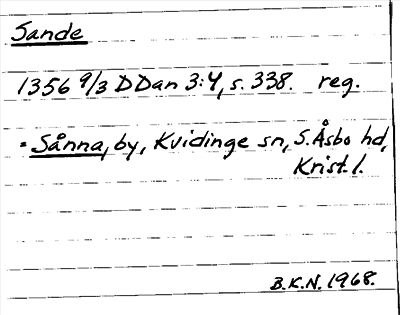 Sande
1356 9/3 DDan 3:4, s. 338. reg.
= Sånna, by, Kvidinge sn, S. Åsbo hd,
Krist. l.
B.K.N. 1968.